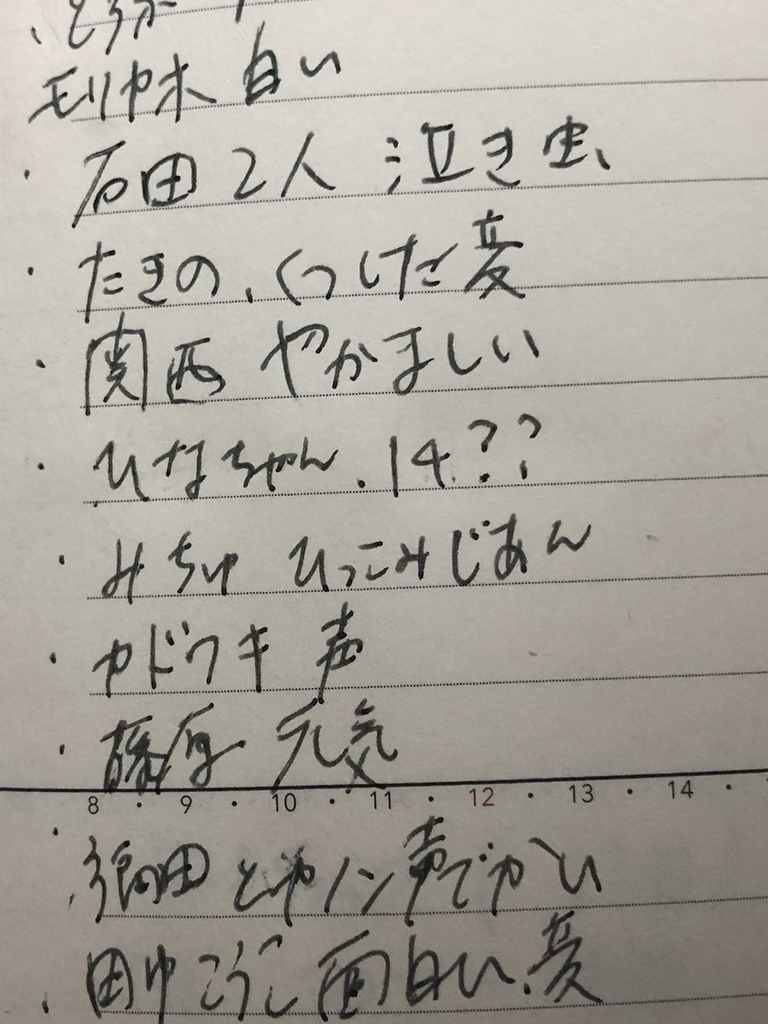 、とうか
モリヤホ 白い
・ 石田2人 泣き虫、
・ たきの、くつした変
・ 関西 やかましい
・ ひなちゃん.14??
・ みちゅ ひっこみじあん
・ カドワキ 声
・ 藤原 元気
8 ・ 9 ・ 10 ・ 11 ・ 12 ・ 13 ・ 14 ・
・ 須田 とかノン声でかい
・ 田中こうじ 面白い、変